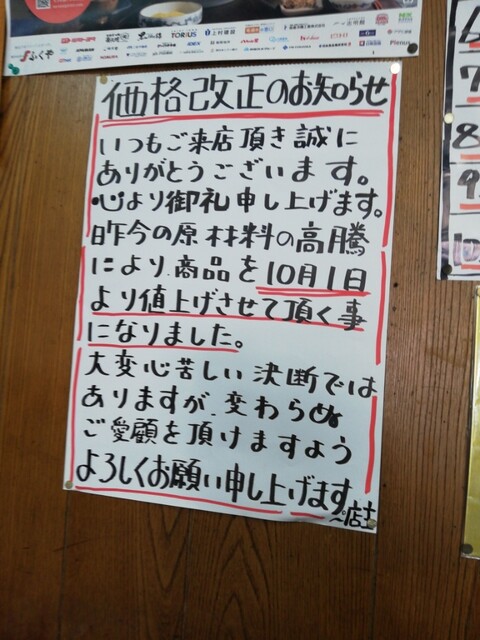 ふくや
TORIUS
上村建設
IDEX
Plenus
価格改正のお知らせ
いつもご来店頂き誠に
ありがとうございます。
心より御礼申し上げます。
昨今の原材料の高騰
により、商品を10月1日
より値上げさせて頂く事
になりました。
大変心苦しい決断では
ありますが、変わらぬ
ご愛顧を頂けますよう
よろしくお願い申し上げます。
~店主
6
7
8
9
10